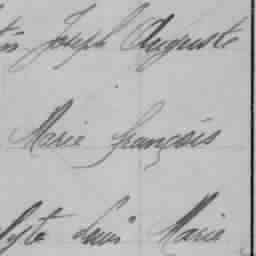 Joseph Auguste
Marie François
Louis Marie